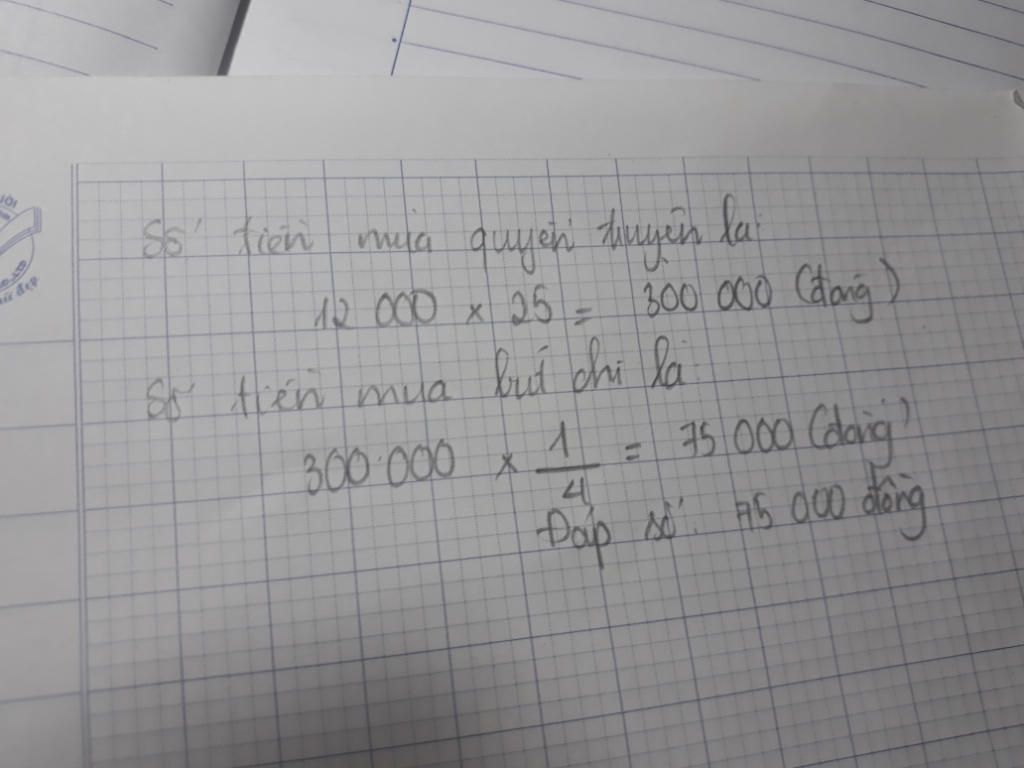 Số tiền mua quyển truyện là:
12 000 x 25 = 300 000 (đồng)
Số tiền mua bút chì là:
300.000 x 1/4 = 75 000 (đồng)
Đáp số: 75 000 đồng